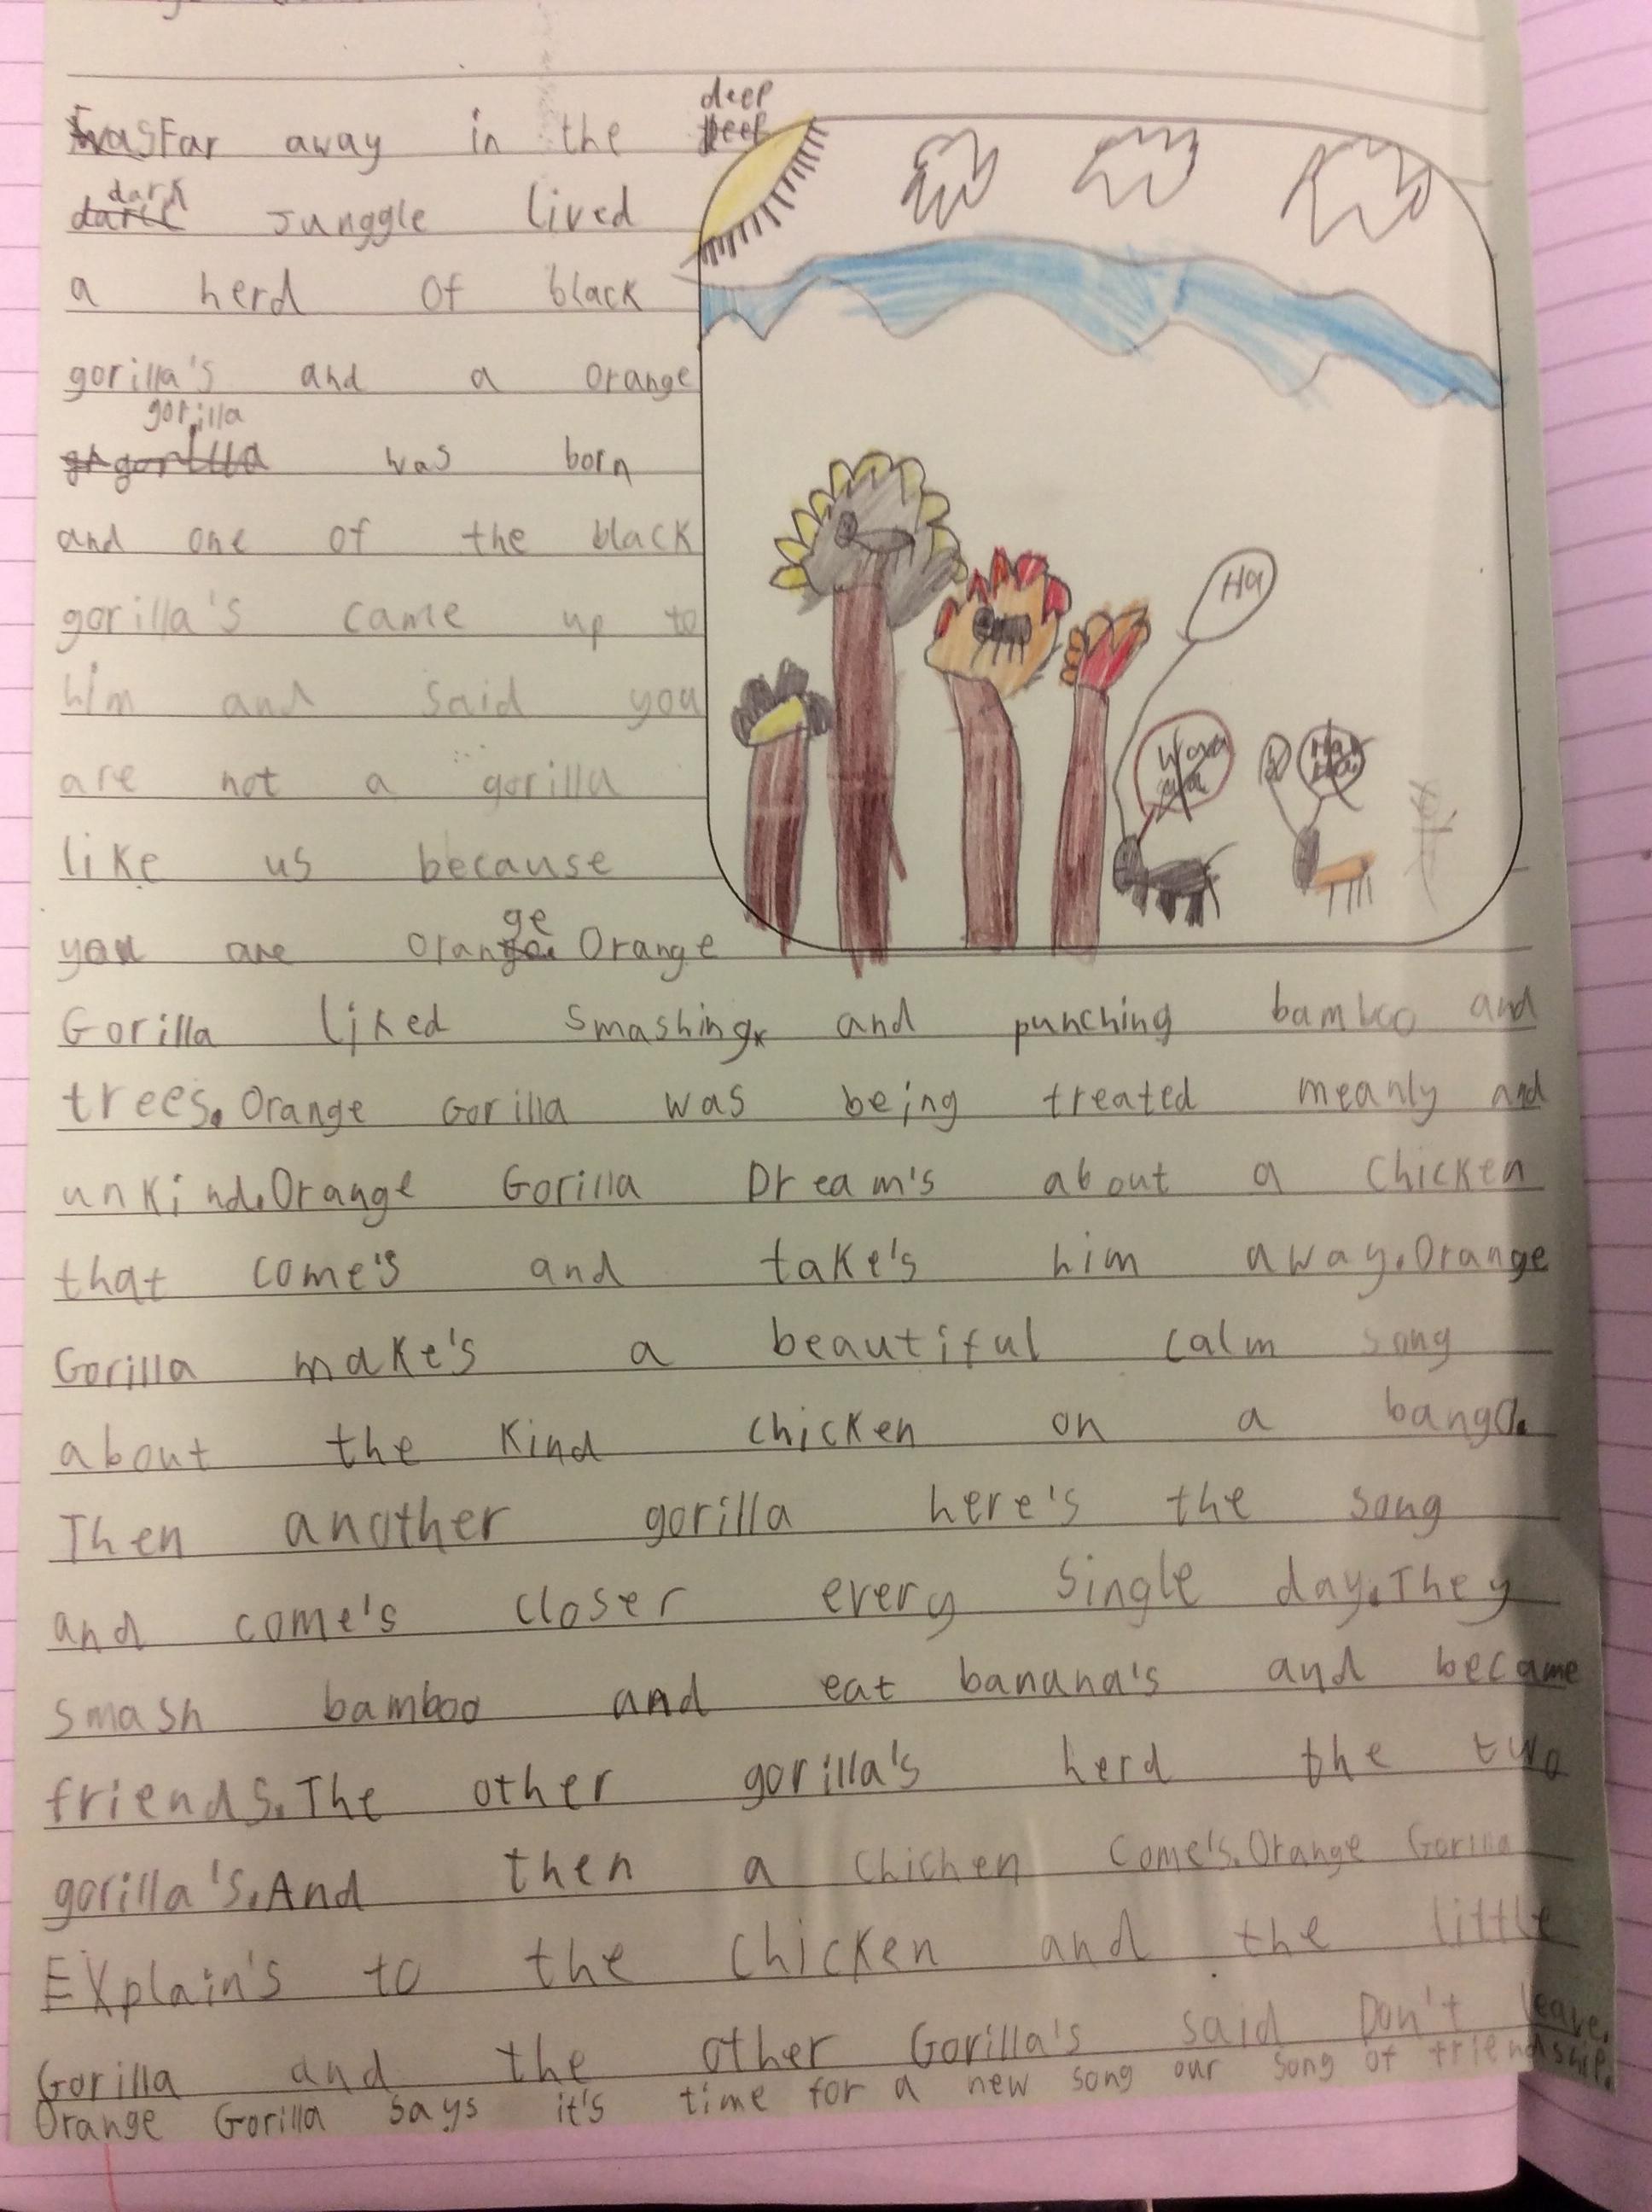 Far away in the deep
dark Junggle lived
a herd of black
gorilla's and a orange
gorilla was born
and one of the black
gorilla's came up to
him and said you
are not a gorilla
like us because
you are orange. Orange
Gorilla liked smashing and punching bamboo and
trees. Orange Gorilla was being treated meanly and
unkind. Orange Gorilla Dream's about a chicken
that come's and take's him away. Orange
Gorilla make's a beautiful calm song
about the kind chicken on a bango.
Then another gorilla here's the song
and come's closer every single day. They
smash bamboo and eat banana's and became
friends. The other gorilla's herd the two
gorilla's. And then a chichen come's. Orange Gorilla
Explain's to the chicken and the little
Gorilla and the other Gorilla's said Don't leave.
Orange Gorilla says it's time for a new song our song of friendship.
Ha